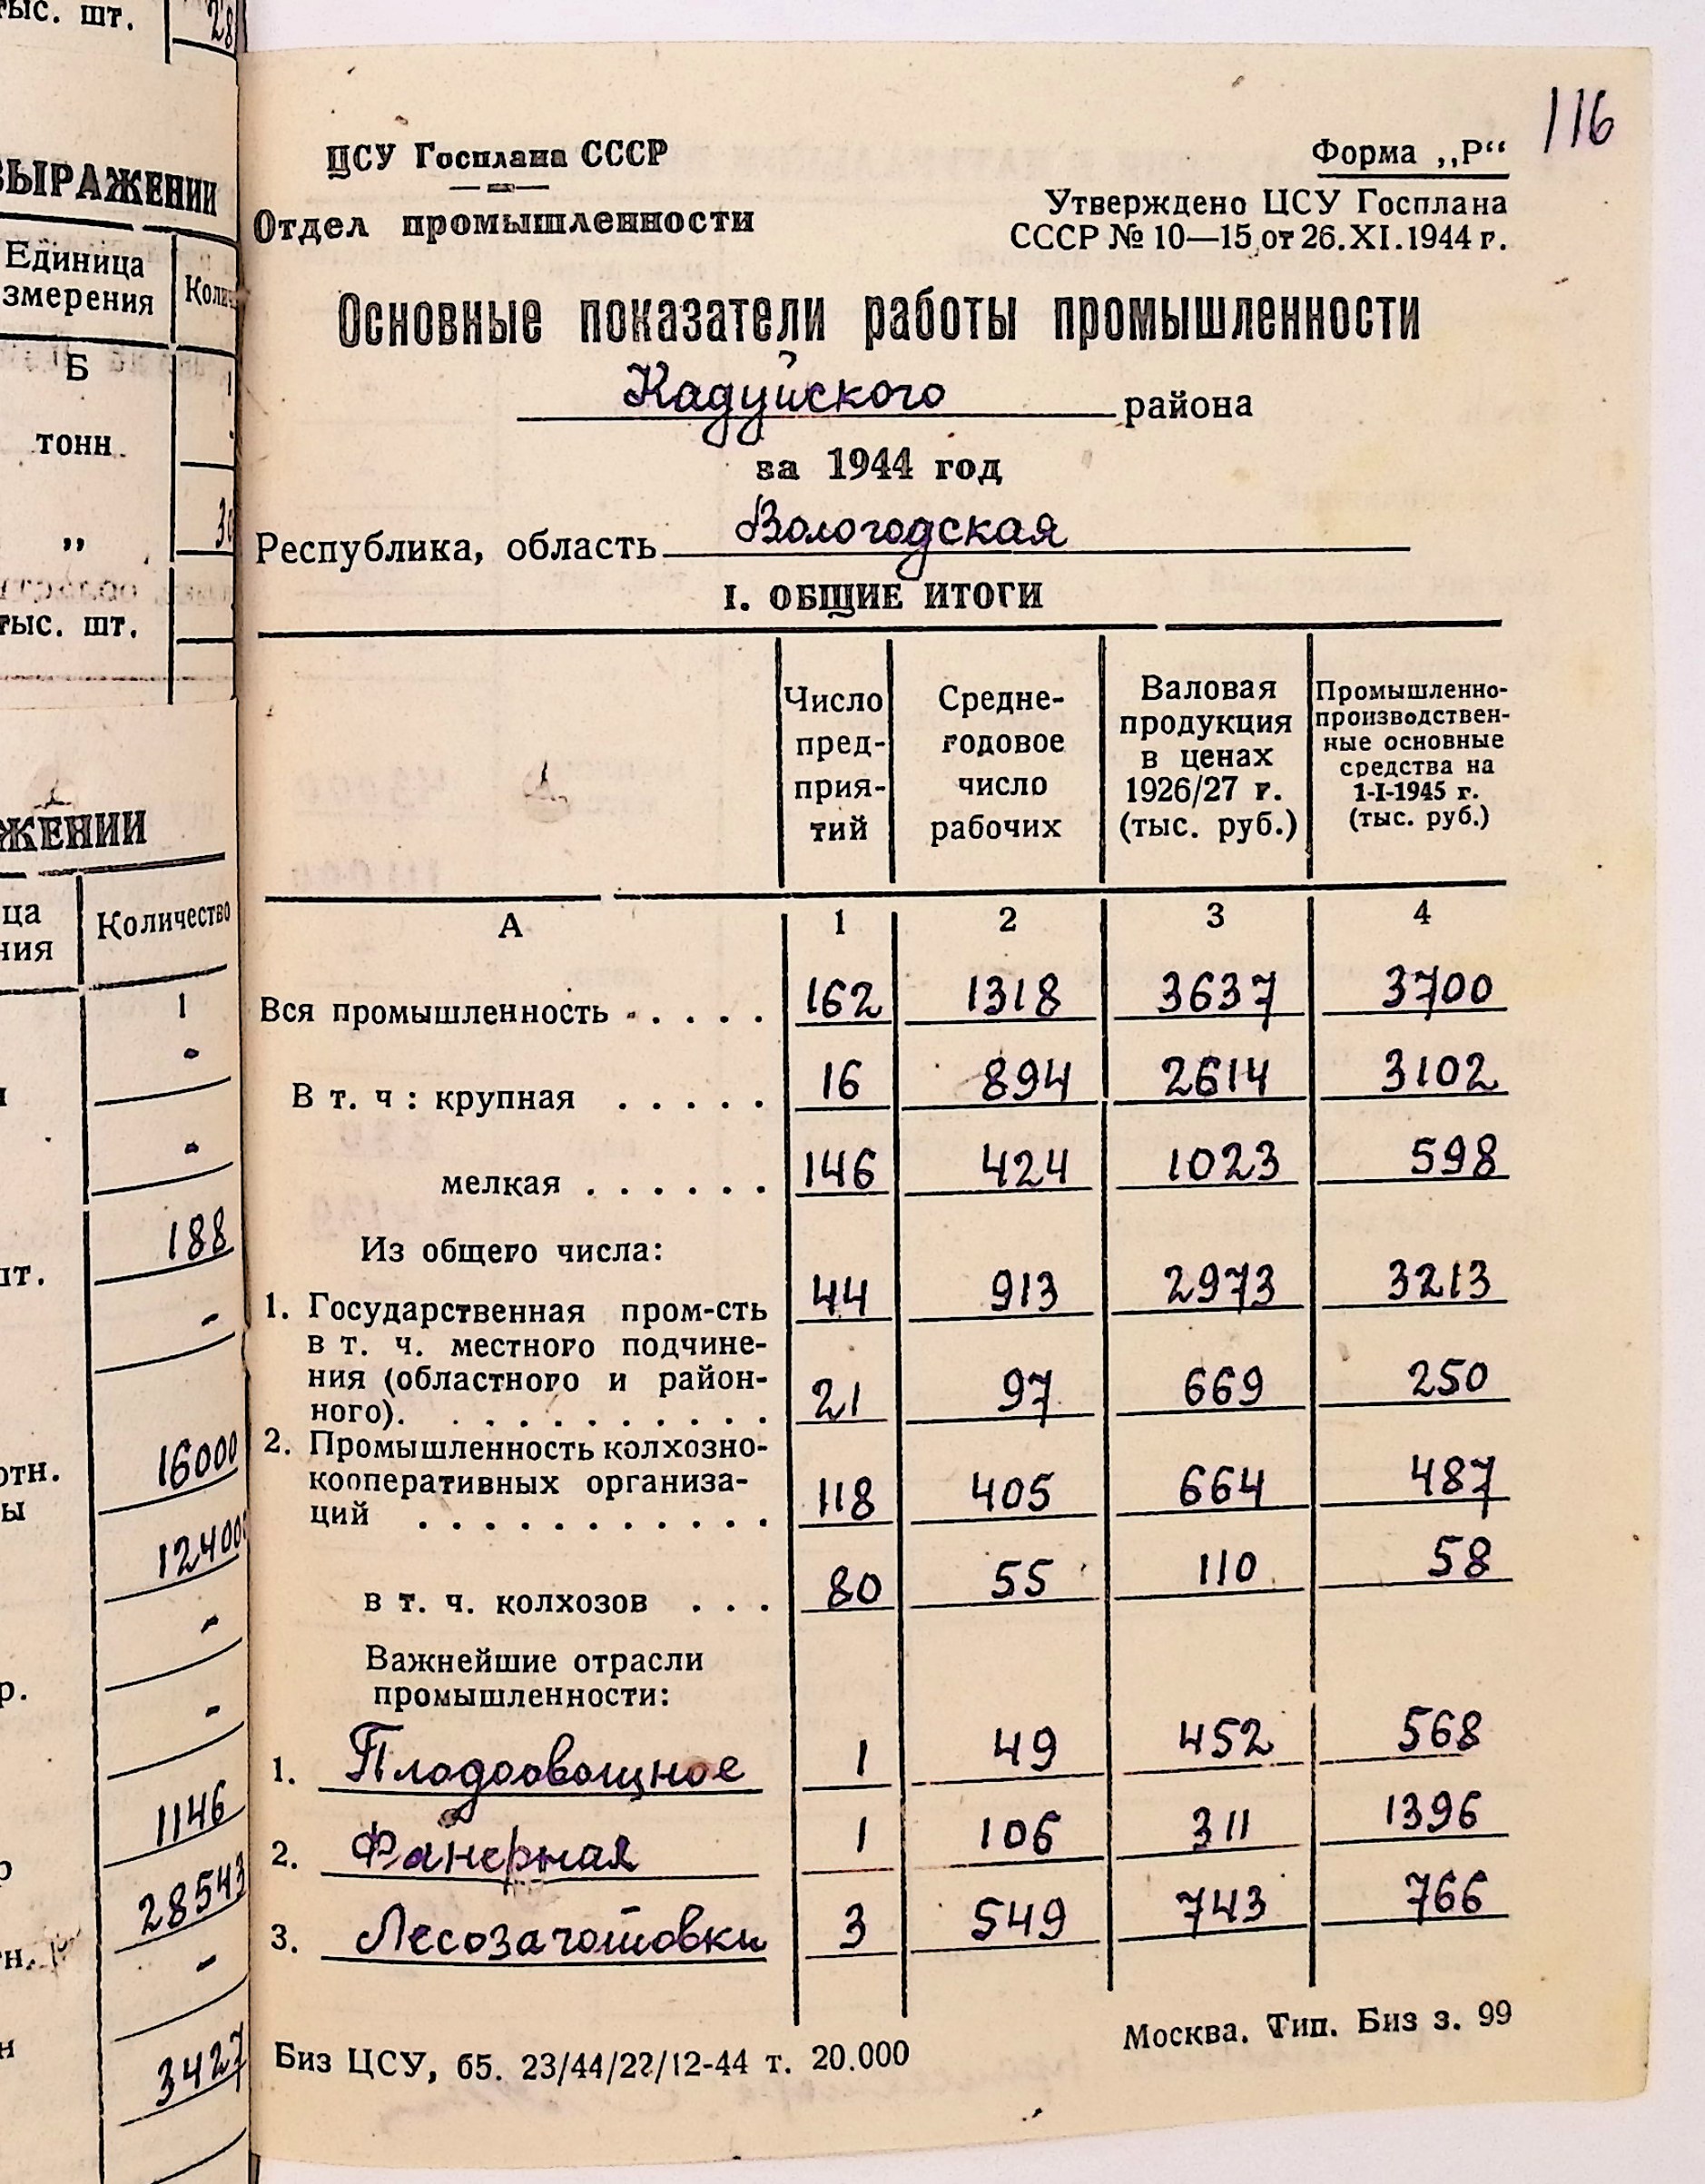 тыс. шт.
28
ВЫРАЖЕНИИ
Единица
змерения
Б
тонн
„
тыс. шт.
ЖЕНИИ
Количество
1
188
шт.
-
16000
отн.
ы
-
-
р.
1146
28543
-
3427
116
ЦСУ Госплана СССР
Отдел промышленности
Форма „Р“
Утверждено ЦСУ Госплана
СССР № 10—15 от 26.XI.1944 г.
Основные показатели работы промышленности
Кадуйского района
за 1944 год
Республика, область Вологодская
I. ОБЩИЕ ИТОГИ
Число пред- прия- тий
Средне- годовое число рабочих
Валовая продукция в ценах 1926/27 г. (тыс. руб.)
Промышленно- производствен- ные основные средства на 1-I-1945 г. (тыс. руб.)
А 1 2 3 4
Вся промышленность . . . . . 162 1318 3637 3700
В т. ч : крупная . . . . . 16 894 2614 3102
мелкая . . . . . . 146 424 1023 598
Из общего числа:
1. Государственная пром-сть 44 913 2973 3213
в т. ч. местного подчине-
ния (областного и район-
ного). . . . . . . . . . . 21 97 669 250
2. Промышленность колхозно-
кооперативных организа-
ций . . . . . . . . . . . 118 405 664 487
в т. ч. колхозов . . . 80 55 110 58
Важнейшие отрасли
промышленности:
1. Плодоовощное 1 49 452 568
2. Фанерная 1 106 311 1396
3. Лесозаготовки 3 549 743 766
Биз ЦСУ, б5. 23/44/22/12-44 т. 20.000
Москва. Тип. Биз з. 99